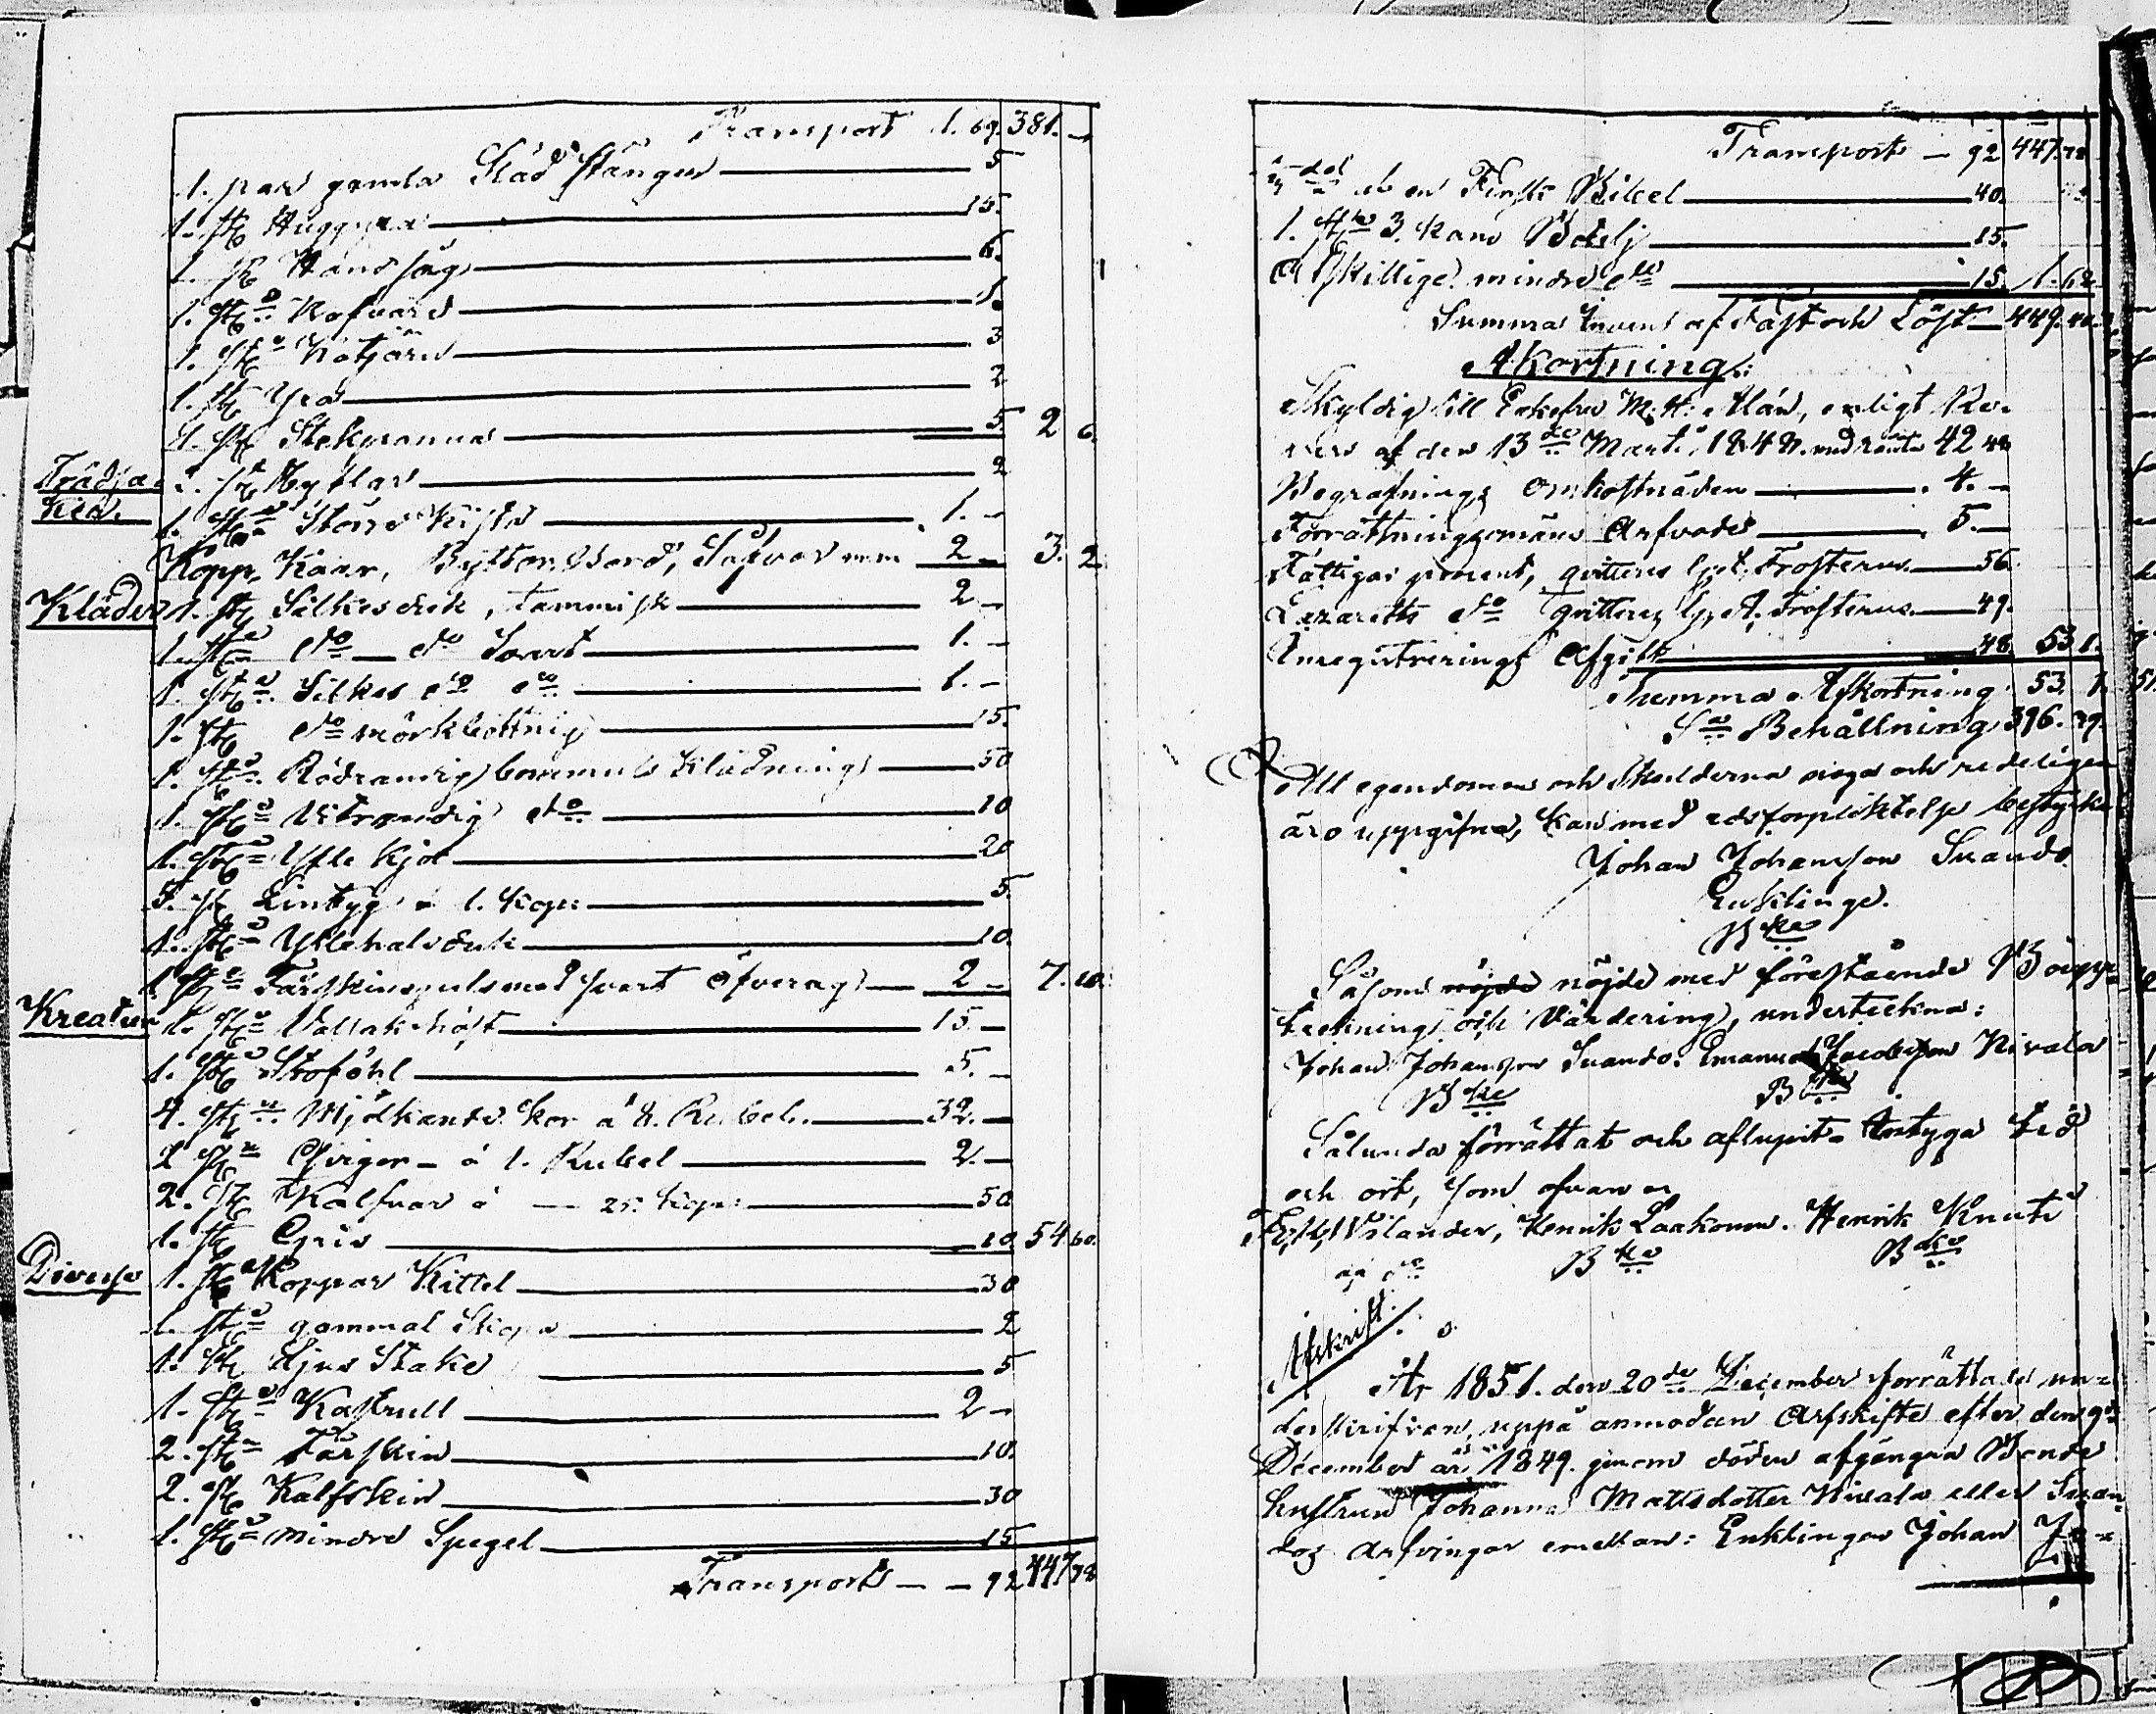 Transport 1. 69. 381. –
1. par gamla Släd Stänger 5
1. st Huggyxa 15.
1. st Handsåg 6.
1. st Kofvard 1.
1. st Kötjärn 3
1. st Yxa 2
1. st Stekpanna 5. 2 6.
Trädsa-
ker. 2. st Byttar 2
1. st Större Kista 1. –
Kopp, Kaar, Byttor, Bord, Säfvar m.m 2 – 3. 2
Kläder 1. st Silkesduk, tammisk 2 –
1. st do do Svart 1. –
1. st Silkes do do 1. –
1. st do mörkbottnig 15.
1. st Rödrandig bommuls Klädning 50
1. st Hvitrandig do 10
1. st Ylle Kjol 20
5. st Lintyg á 1. kop: 5.
1. st Yllehalsduk 10
1. st Fårskinspels med svart öfverag 2 – 7. 10.
Kreatur 1. st Vallakhäst 15 –
1. st Stoföhl 5. –
4. st Mjölkande kor á 8. Rubel. 32. –
2 st Qvigor – á 1. Rubel 2. –
2. st Kalfvar á — 25. kop: 50
1. st Gris 10 54 60.
Diverse 1. st Koppar Kittel 30
1. st gammal Skopa 2
1. st Ljus Stake 5
1. st Kastrull 2 –
2. st Fårskin 10.
2. st Kalfskin 30
1. st mindre Spegel 15
Transport — 92 447 78
Transport – 92 447. 78
del ab en Finsk Bibel 40.
1. st 3. kans Bälj 15.
Åtskillige mindre do 15. 1. 62
Summa Invent af Fast och Löst 449. 40.
Afkortning:
Skyldig till Enkefru M: H: Alán, enligt Re-
vers af den 13de Marti 1847. med ränta 42 48
Begrafnings Omkostnaden 4. –
Förrättningsmäns Arfvode 5. –
Fattigas procent, qvitteras Frosterus 56.
Lazaretts do qvitteras A. Frosterus 49.
Inregistrerings Afgift 48 53 1.
Summa Afkortning 53. 1.
Sa Behållning 396. 39.
All egendomen och Skulderna noga och redeligen
äro uppgifna, kan med edsförpliktelse bestyrka
Johan Johansson Suando
Enklinge.
B ke
Såsom nöjde nöjde med förestående Boupp-
teckning och Värdering, underteckna:
Johan Johansson Suando. Emanuel Jacobsson Nivala
B ke B ke
Sålunda förrättat och aflupit. Intyga tid
och ort, som ofvan
Wilander, Henrik Laakonen. Henrik Knuti
B ke B ke
Afskrift.
År 1851. den 20de December förrättade un-
derskrifven, uppå anmodan Arfskifte efter den 9de
December år 1849. genom döden afgångna Bonde
hustrun Johanna Mattsdotter Nivala eller Suan-
dos arfvingar emellan: Enklingen Johan Jo-